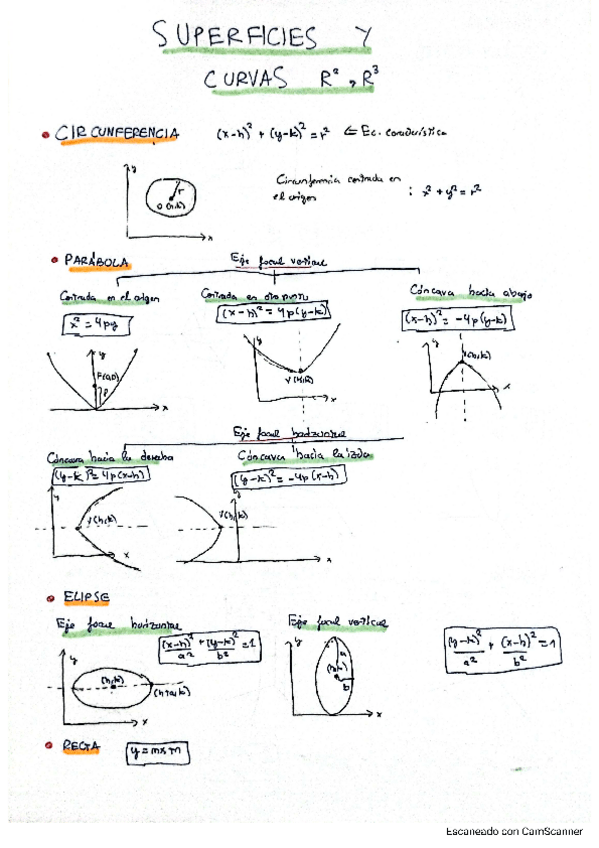 SUPERFICIES Y
CURVAS R², R³
• CIRCUNFERENCIA (x-h)² + (y-k)² = r² ⇐ Ec. característica
y
r
O (h,k)
x
Circunferencia centrada en
el origen : x² + y² = r²
• PARÁBOLA Eje focal vertical
Centrada en el origen
x² = 4py
y
p
x
Centrada en otro punto
(x-h)² = 4p(y-k)
y
V(h,k)
x
Cóncava hacia abajo
(x-h)² = -4p(y-k)
y
V(h,k)
x
Eje focal horizontal
Cóncava hacia la derecha
(y-k)² = 4p(x-h)
y
V(h,k)
x
Cóncava hacia la izda
(y-k)² = -4p(x-h)
V(h,k)
x
• ELIPSE
Eje focal horizontal
(x-h)²/a² + (y-k)²/b² = 1
y
(h,k)
(h+a,k)
x
Eje focal vertical
y
a
(h,k)
b
x
(y-k)²/a² + (x-h)²/b² = 1
• RECTA y = mx+n
Escaneado con CamScanner